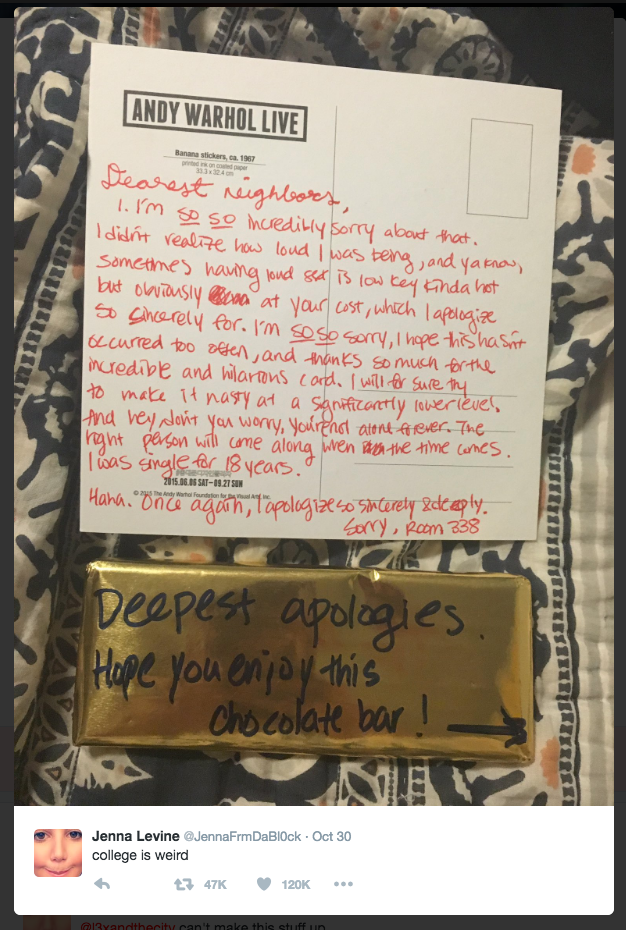 ANDY WARHOL LIVE
Banana stickers, ca. 1967
printed ink on coated paper
Dearest neighbors,
1. I'm so so incredibly sorry about that.
I didn't realize how loud I was being, and ya know,
sometimes having loud sex is low key kinda hot
but obviously at your cost, which I apologize
so sincerely for. I'm so so sorry, I hope this hasn't
occurred too often, and thanks so much for the
incredible and hilarious card. I will for sure try
to make it nasty at a significantly lower level.
And hey, don't you worry, you're not alone forever. The
right person will come along when the time comes.
I was single for 18 years.
2015.06.06 SAT-09.27 SUN
© 2015 The Andy Warhol Foundation for the Visual Arts, Inc.
Haha. Once again, I apologize so sincerely & deeply.
Sorry, Room 338
Deepest apologies.
Hope you enjoy this
chocolate bar!
Jenna Levine @JennaFrmDaBl0ck · Oct 30
college is weird
47K 120K
@l3xandthecity can't make this stuff up